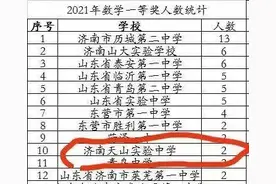 2021年数学一等奖人数统计
序号 学校 人数
1 济南市历城第二中学 13
2 济南山大实验学校 6
3 山东省泰安第一中学 6
4 山东省临沂第一中学 5
5 山东省青岛第二中学 5
6 山东省实验中学 5
7 东营市第一中学 4
8 东营市胜利第一中学 2
9 2
10 济南天山实验中学 2
11 2
12 山东省济南市莱芜第一中学 2